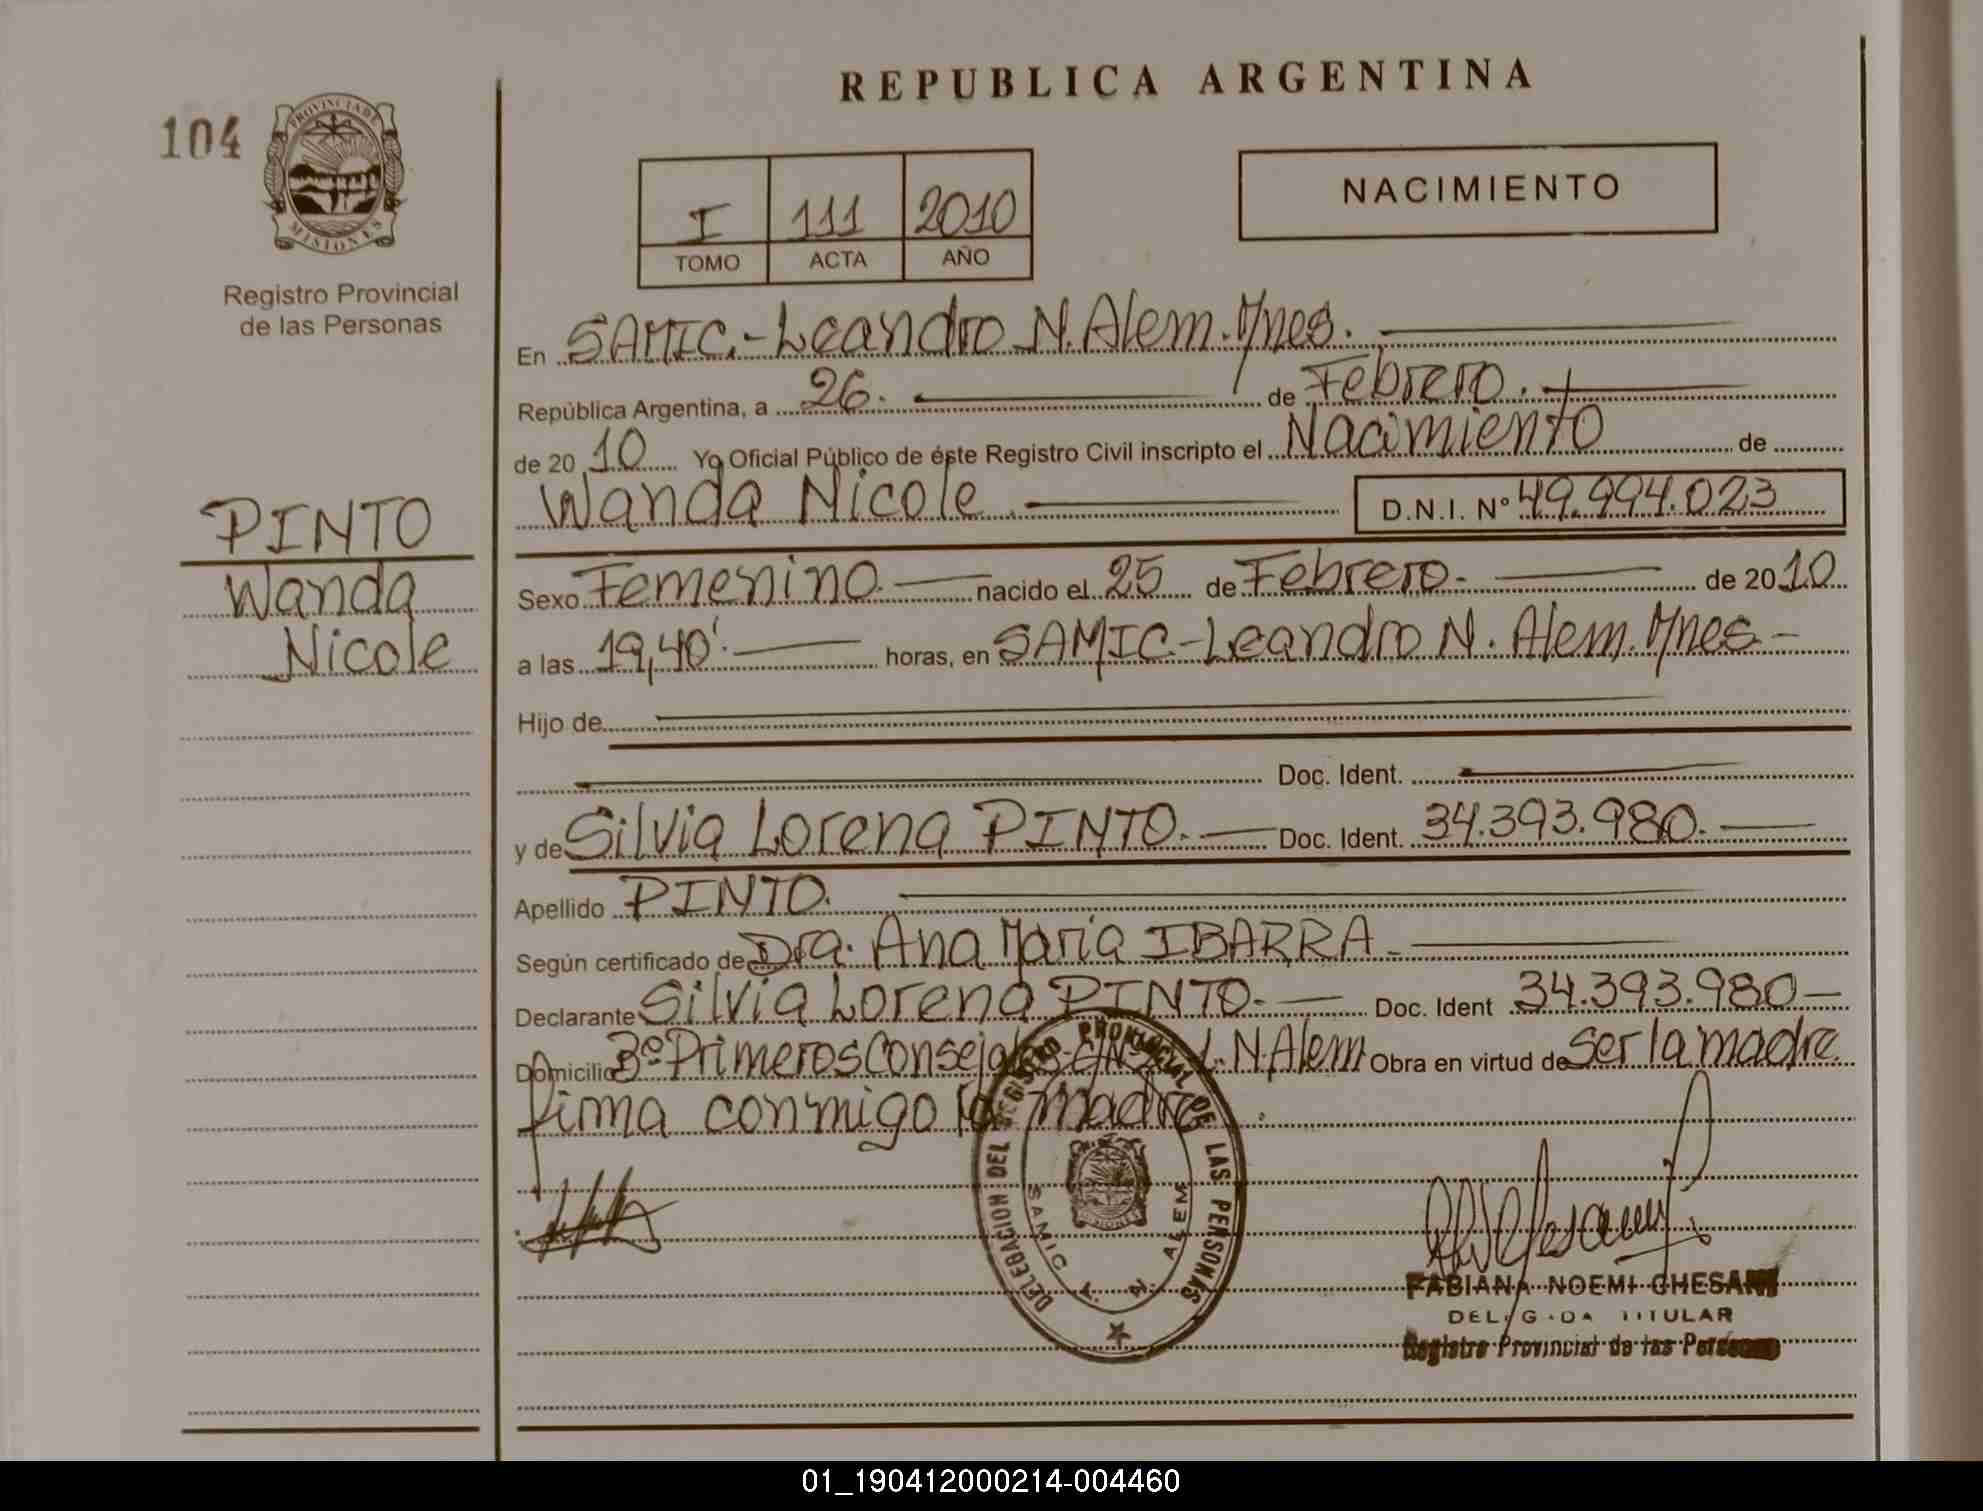 REPUBLICA ARGENTINA
104
PROVINCIA DE
MISIONES
Registro Provincial
de las Personas
I 111 2010
TOMO ACTA AÑO
NACIMIENTO
En SAMIC.-Leandro N. Alem. Mnes.
República Argentina, a 26. de Febrero.
de 20 10 Yo Oficial Público de éste Registro Civil inscripto el Nacimiento de
Wanda Nicole D.N.I. Nº 49.994.023
PINTO
Wanda
Nicole
Sexo Femenino nacido el 25 de Febrero. de 20 10
a las 19,40' horas, en SAMIC-Leandro N. Alem. Mnes-
Hijo de
Doc. Ident.
y de Silvia Lorena PINTO. Doc. Ident. 34.393.980.
Apellido PINTO.
Según certificado de Dra. Ana Maria IBARRA
Declarante Silvia Lorena PINTO. Doc. Ident 34.393.980
Domicilio Bº Primeros L.N.Alem Obra en virtud de ser la madre
firma conmigo la madre.
DELEGACION DEL REGISTRO PROVINCIAL DE LAS PERSONAS
SAMIC L. N. ALEM
FABIANA NOEMI GHESANI
TITULAR
Registro Provincial de las Personas
01_190412000214-004460